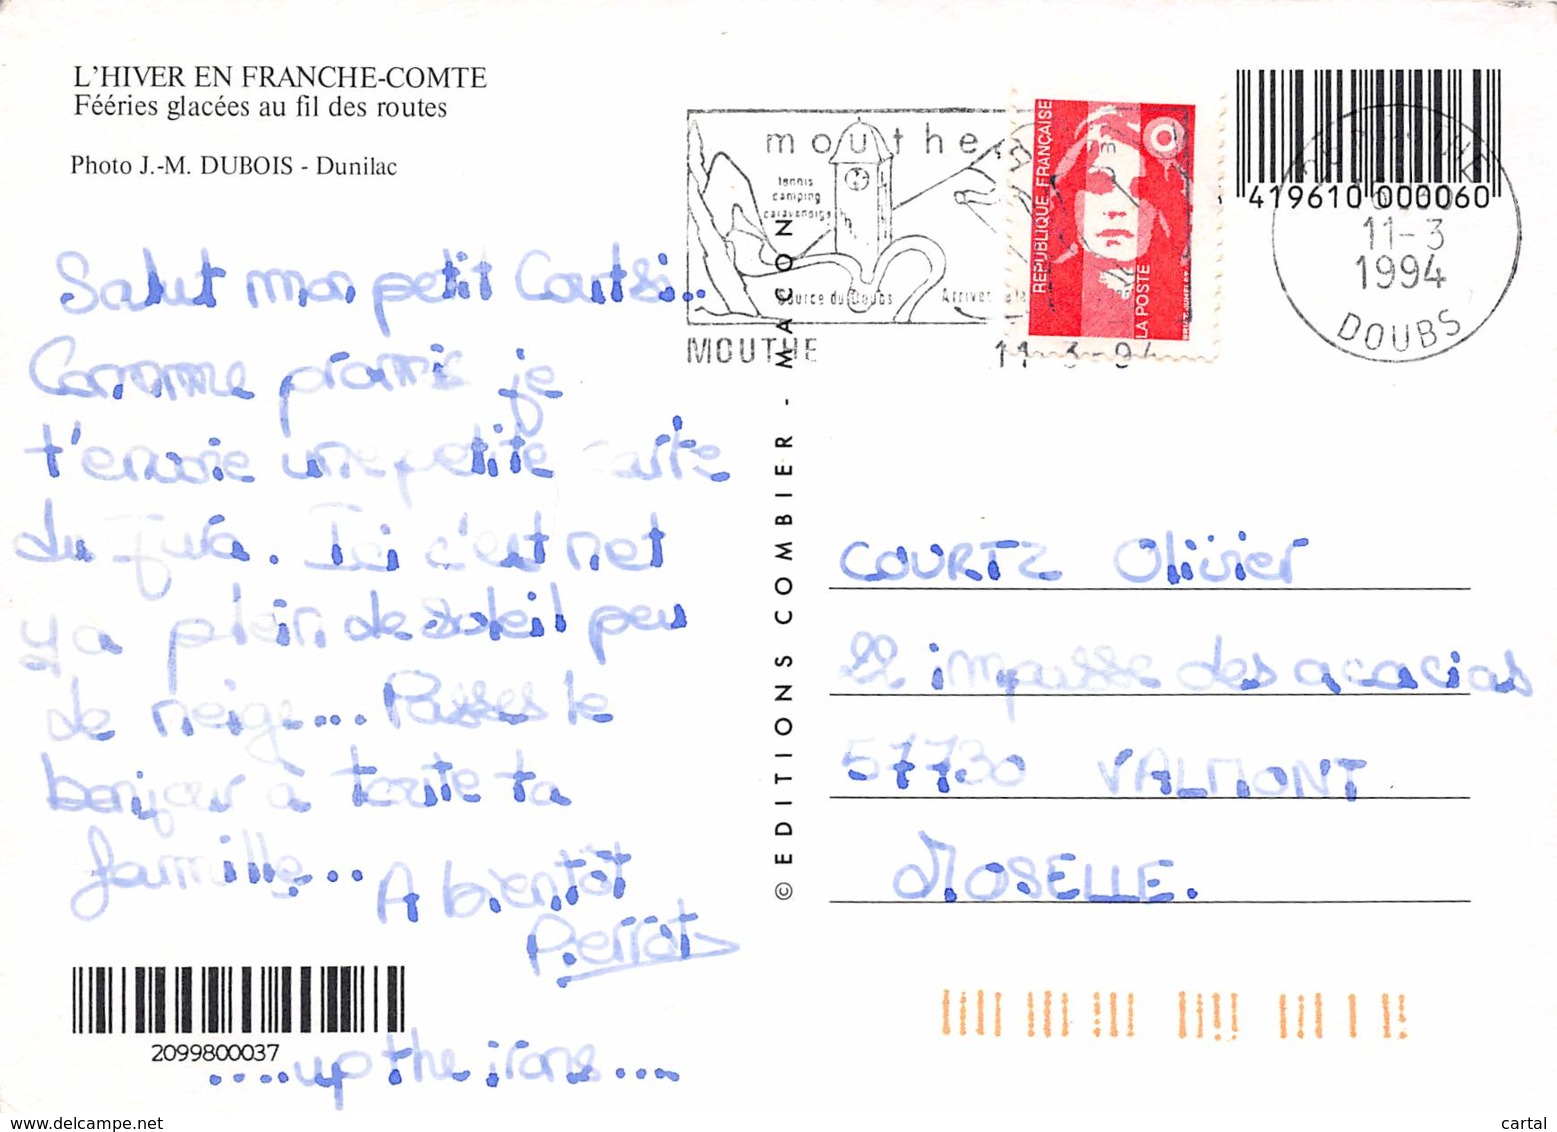 L'HIVER EN FRANCHE-COMTE
Fééries glacées au fil des routes
Photo J.-M. DUBOIS - Dunilac
mouthe
tennis
camping
caravaning
Source du Doubs
Arriver
MOUTHE
11-3-94
REPUBLIQUE FRANÇAISE
LA POSTE
419610 000060
11-3
1994
DOUBS
Salut mon petit Courtsi...
Comme promis je
t'envoie une petite carte
du Jura. Ici c'est net
y a plein de soleil peu
de neige... Passes le
bonjour à toute ta
famille...
A bientôt
Pierrot
....up the irons....
2099800037
© EDITIONS COMBIER - MACON
COURTZ Olivier
22 impasse des acacias
57730 VALMONT
MOSELLE.
www.delcampe.net
cartal